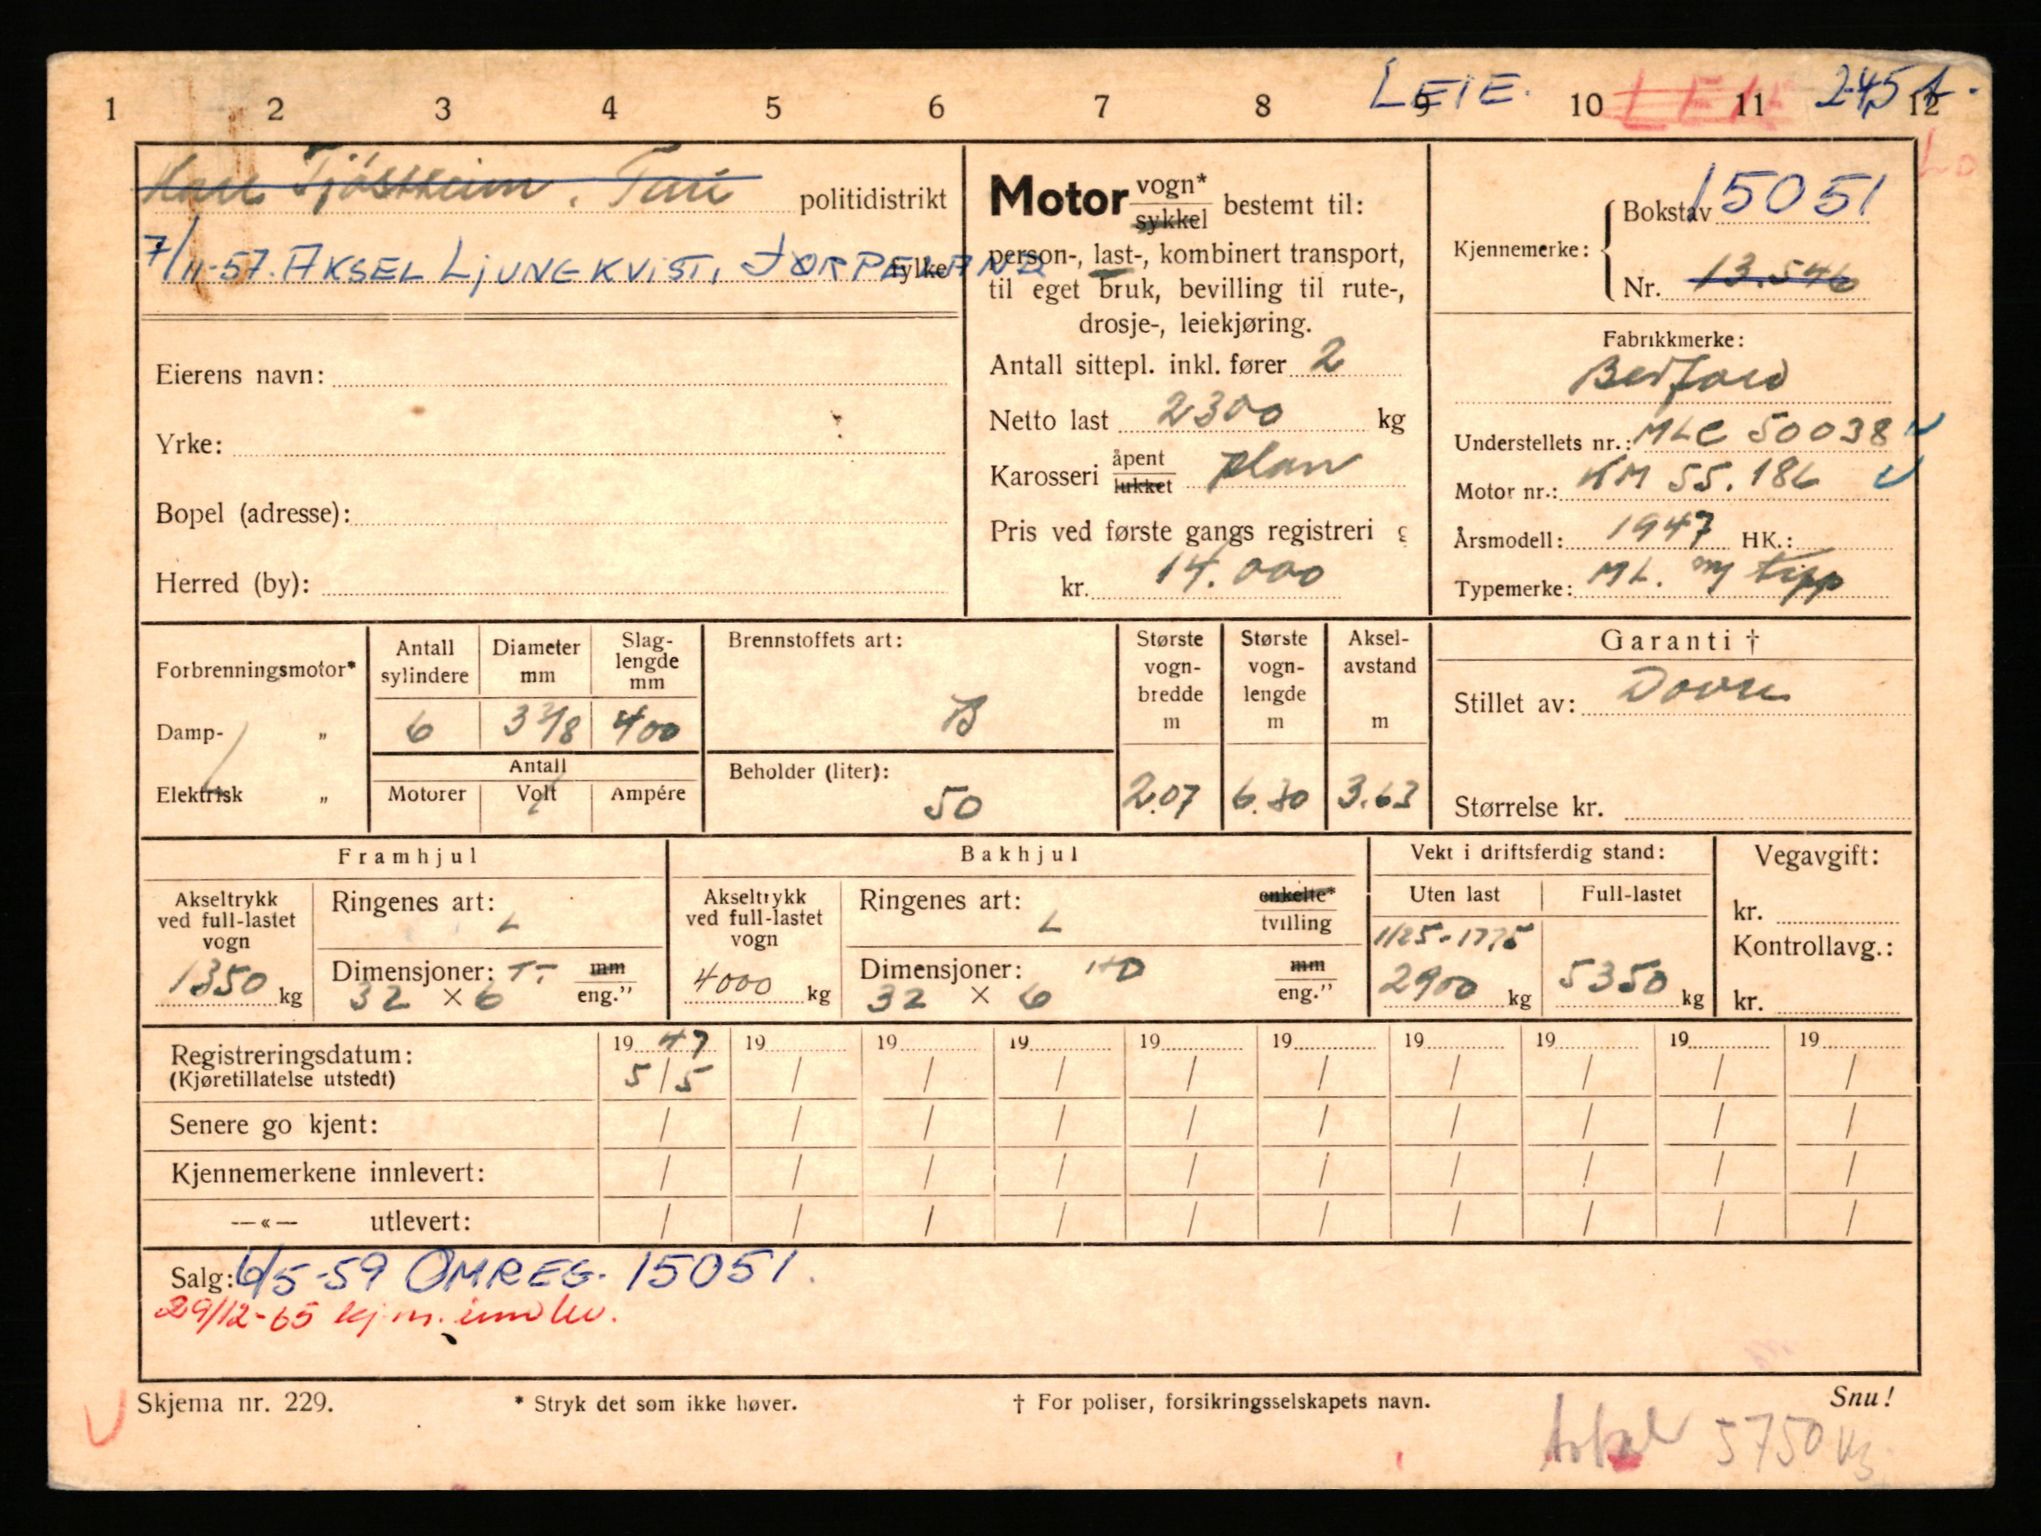 LEIE. 245 t.
1 2 3 4 5 6 7 8 9 10 11 12
Tjöstheim, politidistrikt
7/11-57. AKSEL LJUNGKVIST, JØRPELAND fylke
Eierens navn:
Yrke:
Bopel (adresse):
Herred (by):
Motor vogn* sykkel bestemt til:
person-, last-, kombinert transport,
til eget bruk, bevilling til rute-,
drosje-, leiekjøring.
Antall sittepl. inkl. fører 2
Netto last 2300 kg
Karosseri åpent lukket plan
Pris ved første gangs registreri g
kr. 14.000
Kjennemerke: Bokstav 15051
Nr. 13.546
Fabrikkmerke:
Bedford
Understellets nr.: MLC 50038
Motor nr.: KM 55.186
Årsmodell: 1947 HK.:
Typemerke: ML. m/ tipp
Forbrenningsmotor*
Damp- „
Elektrisk „
Antall sylindere 6
Diameter mm 3 3/8
Slaglengde mm 400
Antall
Motorer Volt Ampére
Brennstoffets art:
B
Beholder (liter):
50
Største vognbredde m 2.07
Største vognlengde m 6.30
Akselavstand m 3.63
Garanti †
Stillet av: Dovre
Størrelse kr.
Framhjul
Akseltrykk ved full-lastet vogn 1350 kg
Ringenes art: L
Dimensjoner: mm
32 × 6 eng."
Bakhjul
Akseltrykk ved full-lastet vogn 4000 kg
Ringenes art: L enkelte* tvilling
Dimensjoner: HD mm
32 × 6 eng."
Vekt i driftsferdig stand:
Uten last Full-lastet
1125-1775
2900 kg 5350 kg
Vegavgift:
kr.
Kontrollavg.:
kr.
Registreringsdatum: 19 47 19 19 19 19 19 19 19 19 19
(Kjøretillatelse utstedt) 5/5 / / / / / / / / /
Senere go kjent: / / / / / / / / / /
Kjennemerkene innlevert: / / / / / / / / / /
—«— utlevert: / / / / / / / / / /
Salg: 6/5-59 OMREG. 15051.
29/12-65 kj.m. innlev.
Skjema nr. 229. * Stryk det som ikke høver. † For poliser, forsikringsselskapets navn. Snu!
total 5750 kg